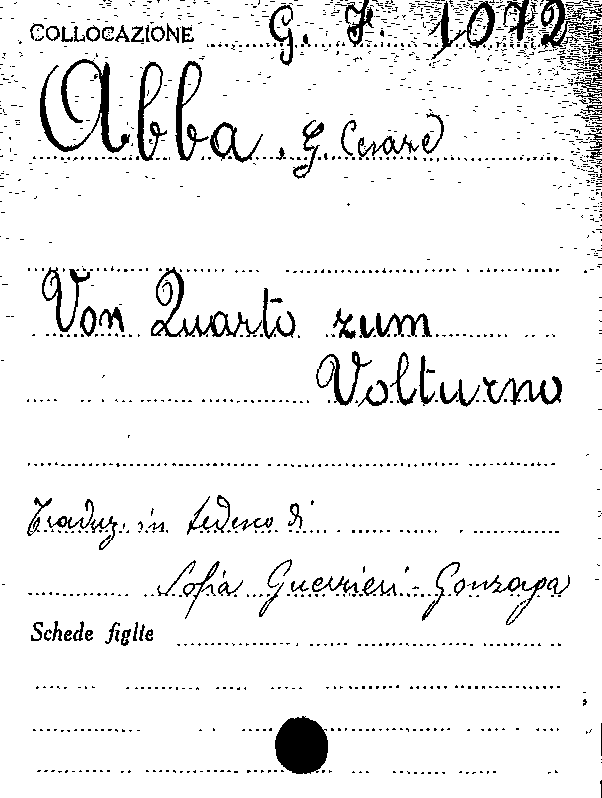 COLLOCAZIONE G. F. 1072
Abba. G. Cesare
Von Quarto zum
Volturno
Traduz. in tedesco di
Sofia Guerrieri-Gonzaga
Schede figlie